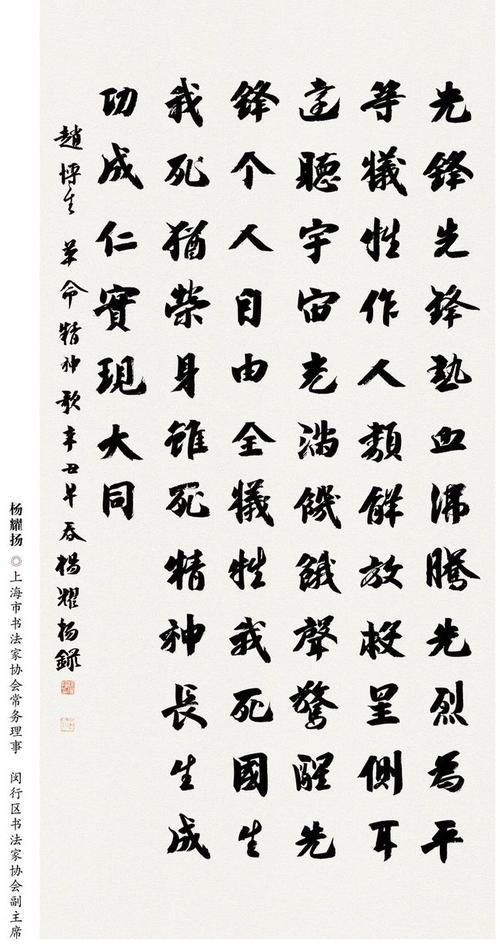 先鋒先鋒熱血沸騰先烈為平
等犧牲作人類解放救星側耳
遠聽宇宙充滿饑餓聲警醒先
鋒个人自由全犧牲我死國生
我死猶榮身雖死精神長生成
功成仁實現大同
趙博生革命精神歌辛丑年春楊耀揚錄
杨耀扬◎上海市书法家协会常务理事 闵行区书法家协会副主席